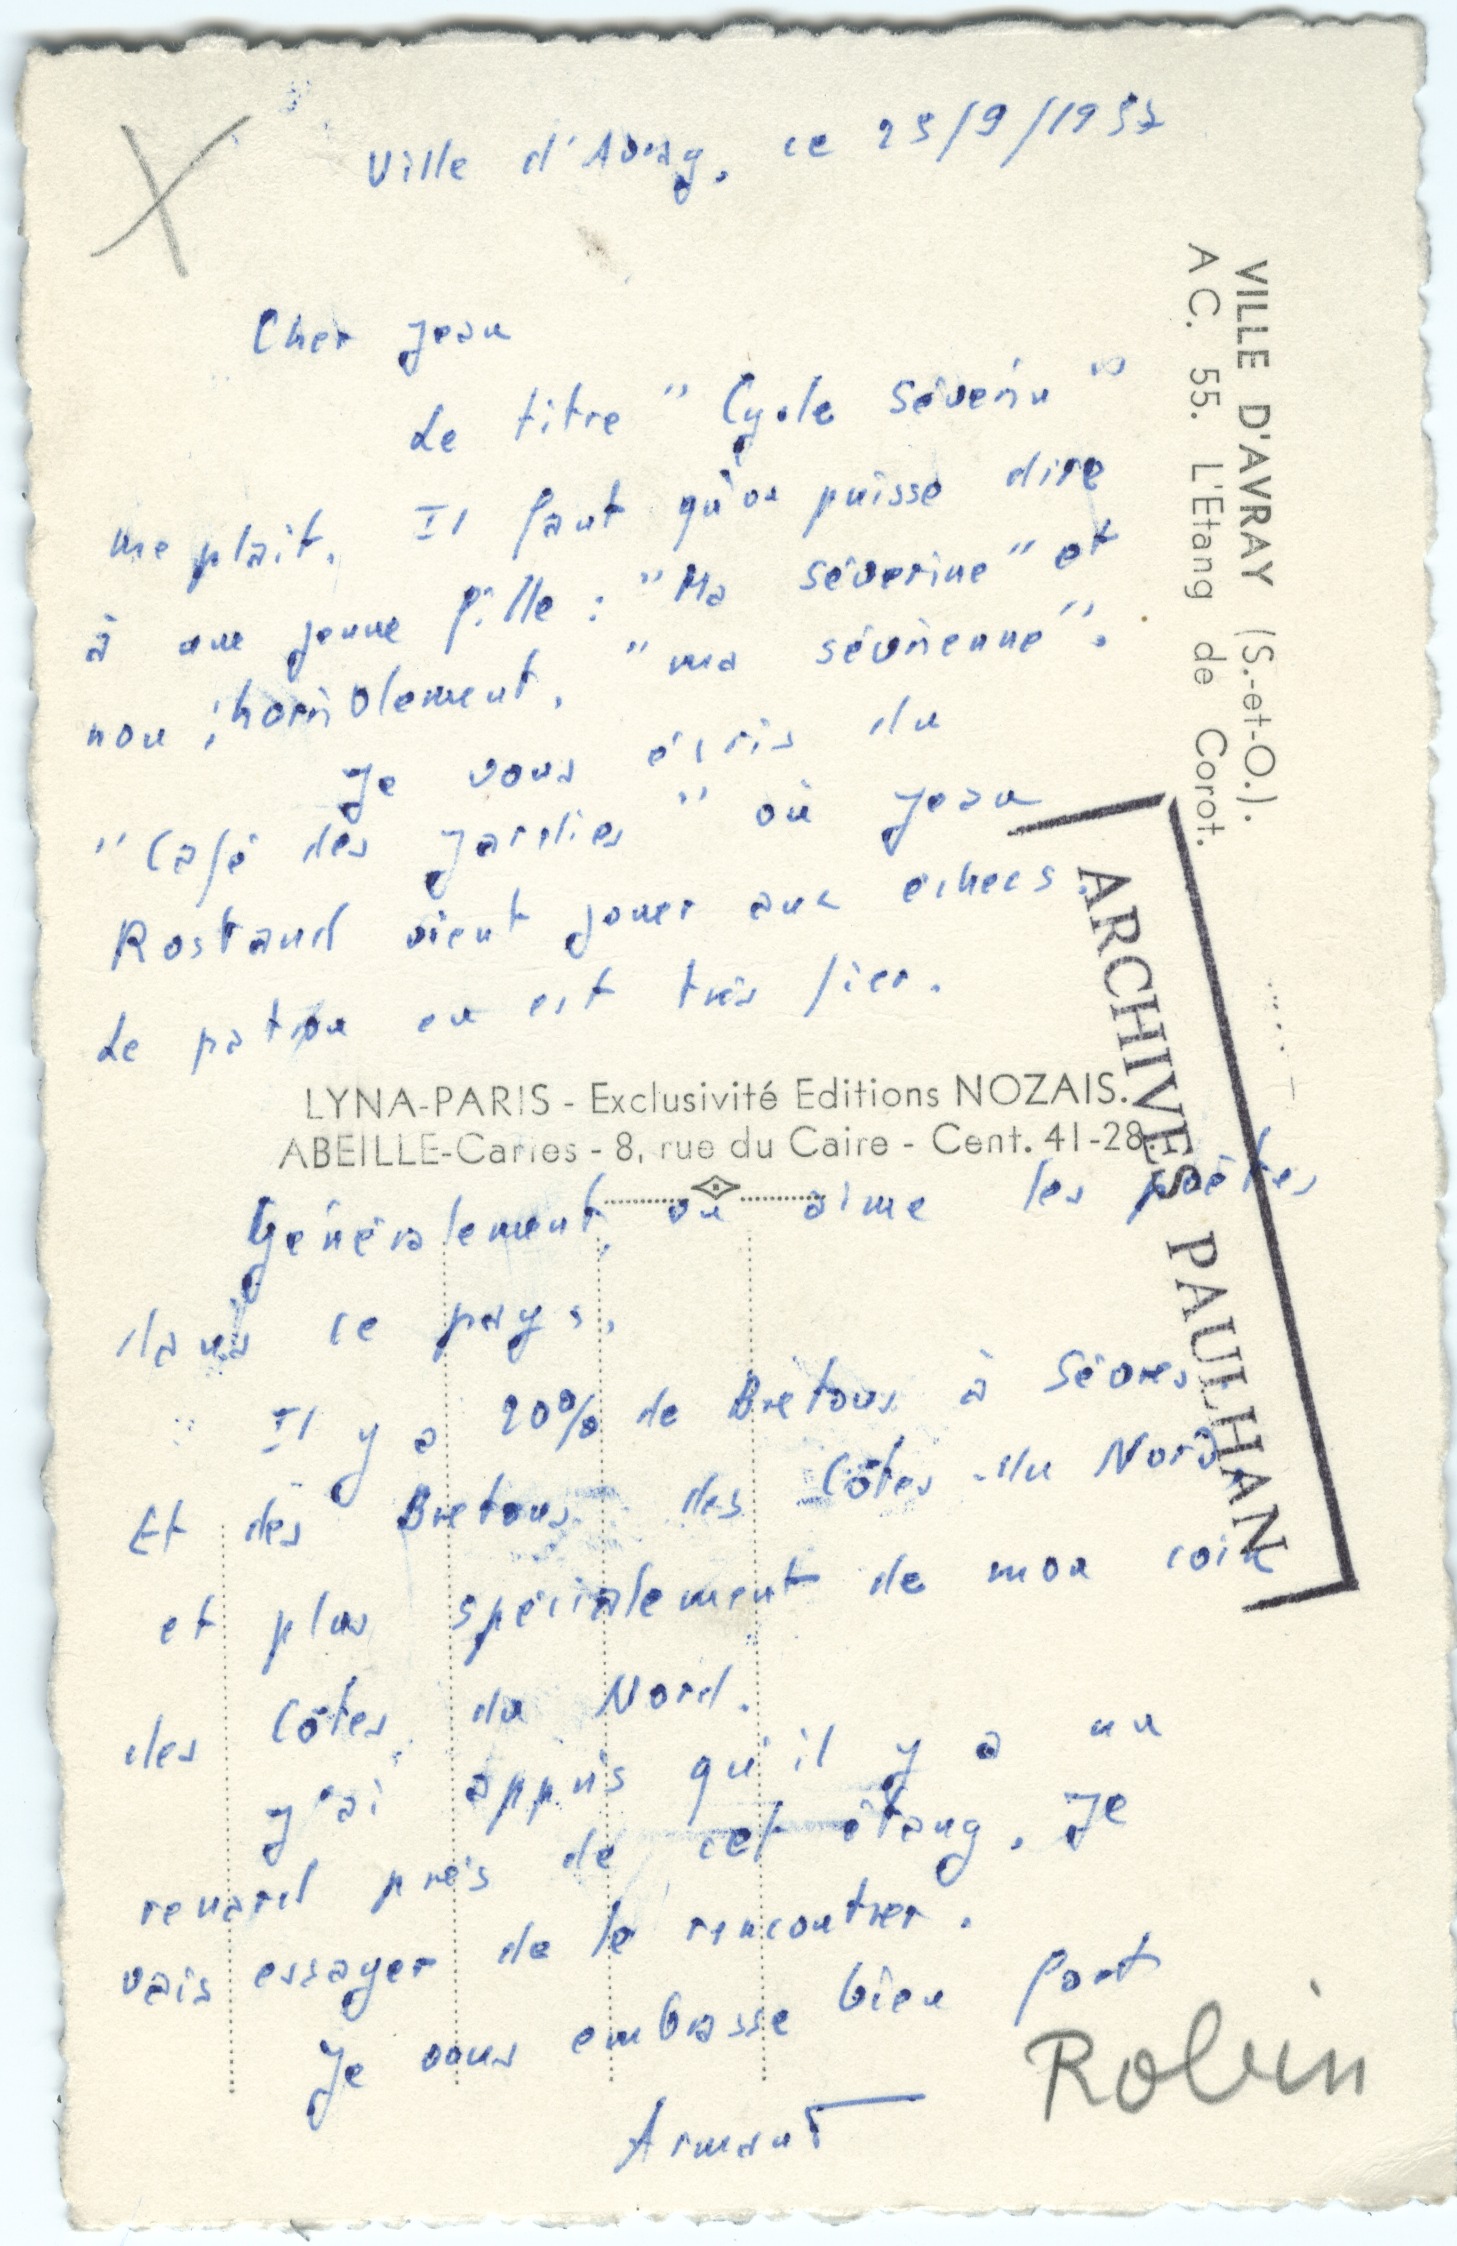 Ville d'Avray, ce 23/9/1957
Cher Jean
Le titre " Cycle Séverin "
me plaît. Il faut qu'on puisse dire
à une jeune fille : "Ma séverine" et
non, horriblement, "ma sévrienne".
Je vous écris du
"Café des Jardies" où Jean
Rostand vient jouer aux échecs.
Le patron en est très fier.
LYNA-PARIS - Exclusivité Editions NOZAIS.
ABEILLE-Cartes - 8, rue du Caire - Cent. 41-28.
Généralement, on aime les poètes
dans ce pays.
Il y a 20% de Bretons à Sèvres.
Et des Bretons des Côtes-du Nord,
et plus spécialement de mon coin
des Côtes du Nord.
J'ai appris qu'il y a un
renard près de cet étang. Je
vais essayer de le rencontrer.
Je vous embrasse bien fort
Armand
Robin
VILLE D'AVRAY (S.-et-O.).
A C. 55. L'Etang de Corot.
ARCHIVES PAULHAN